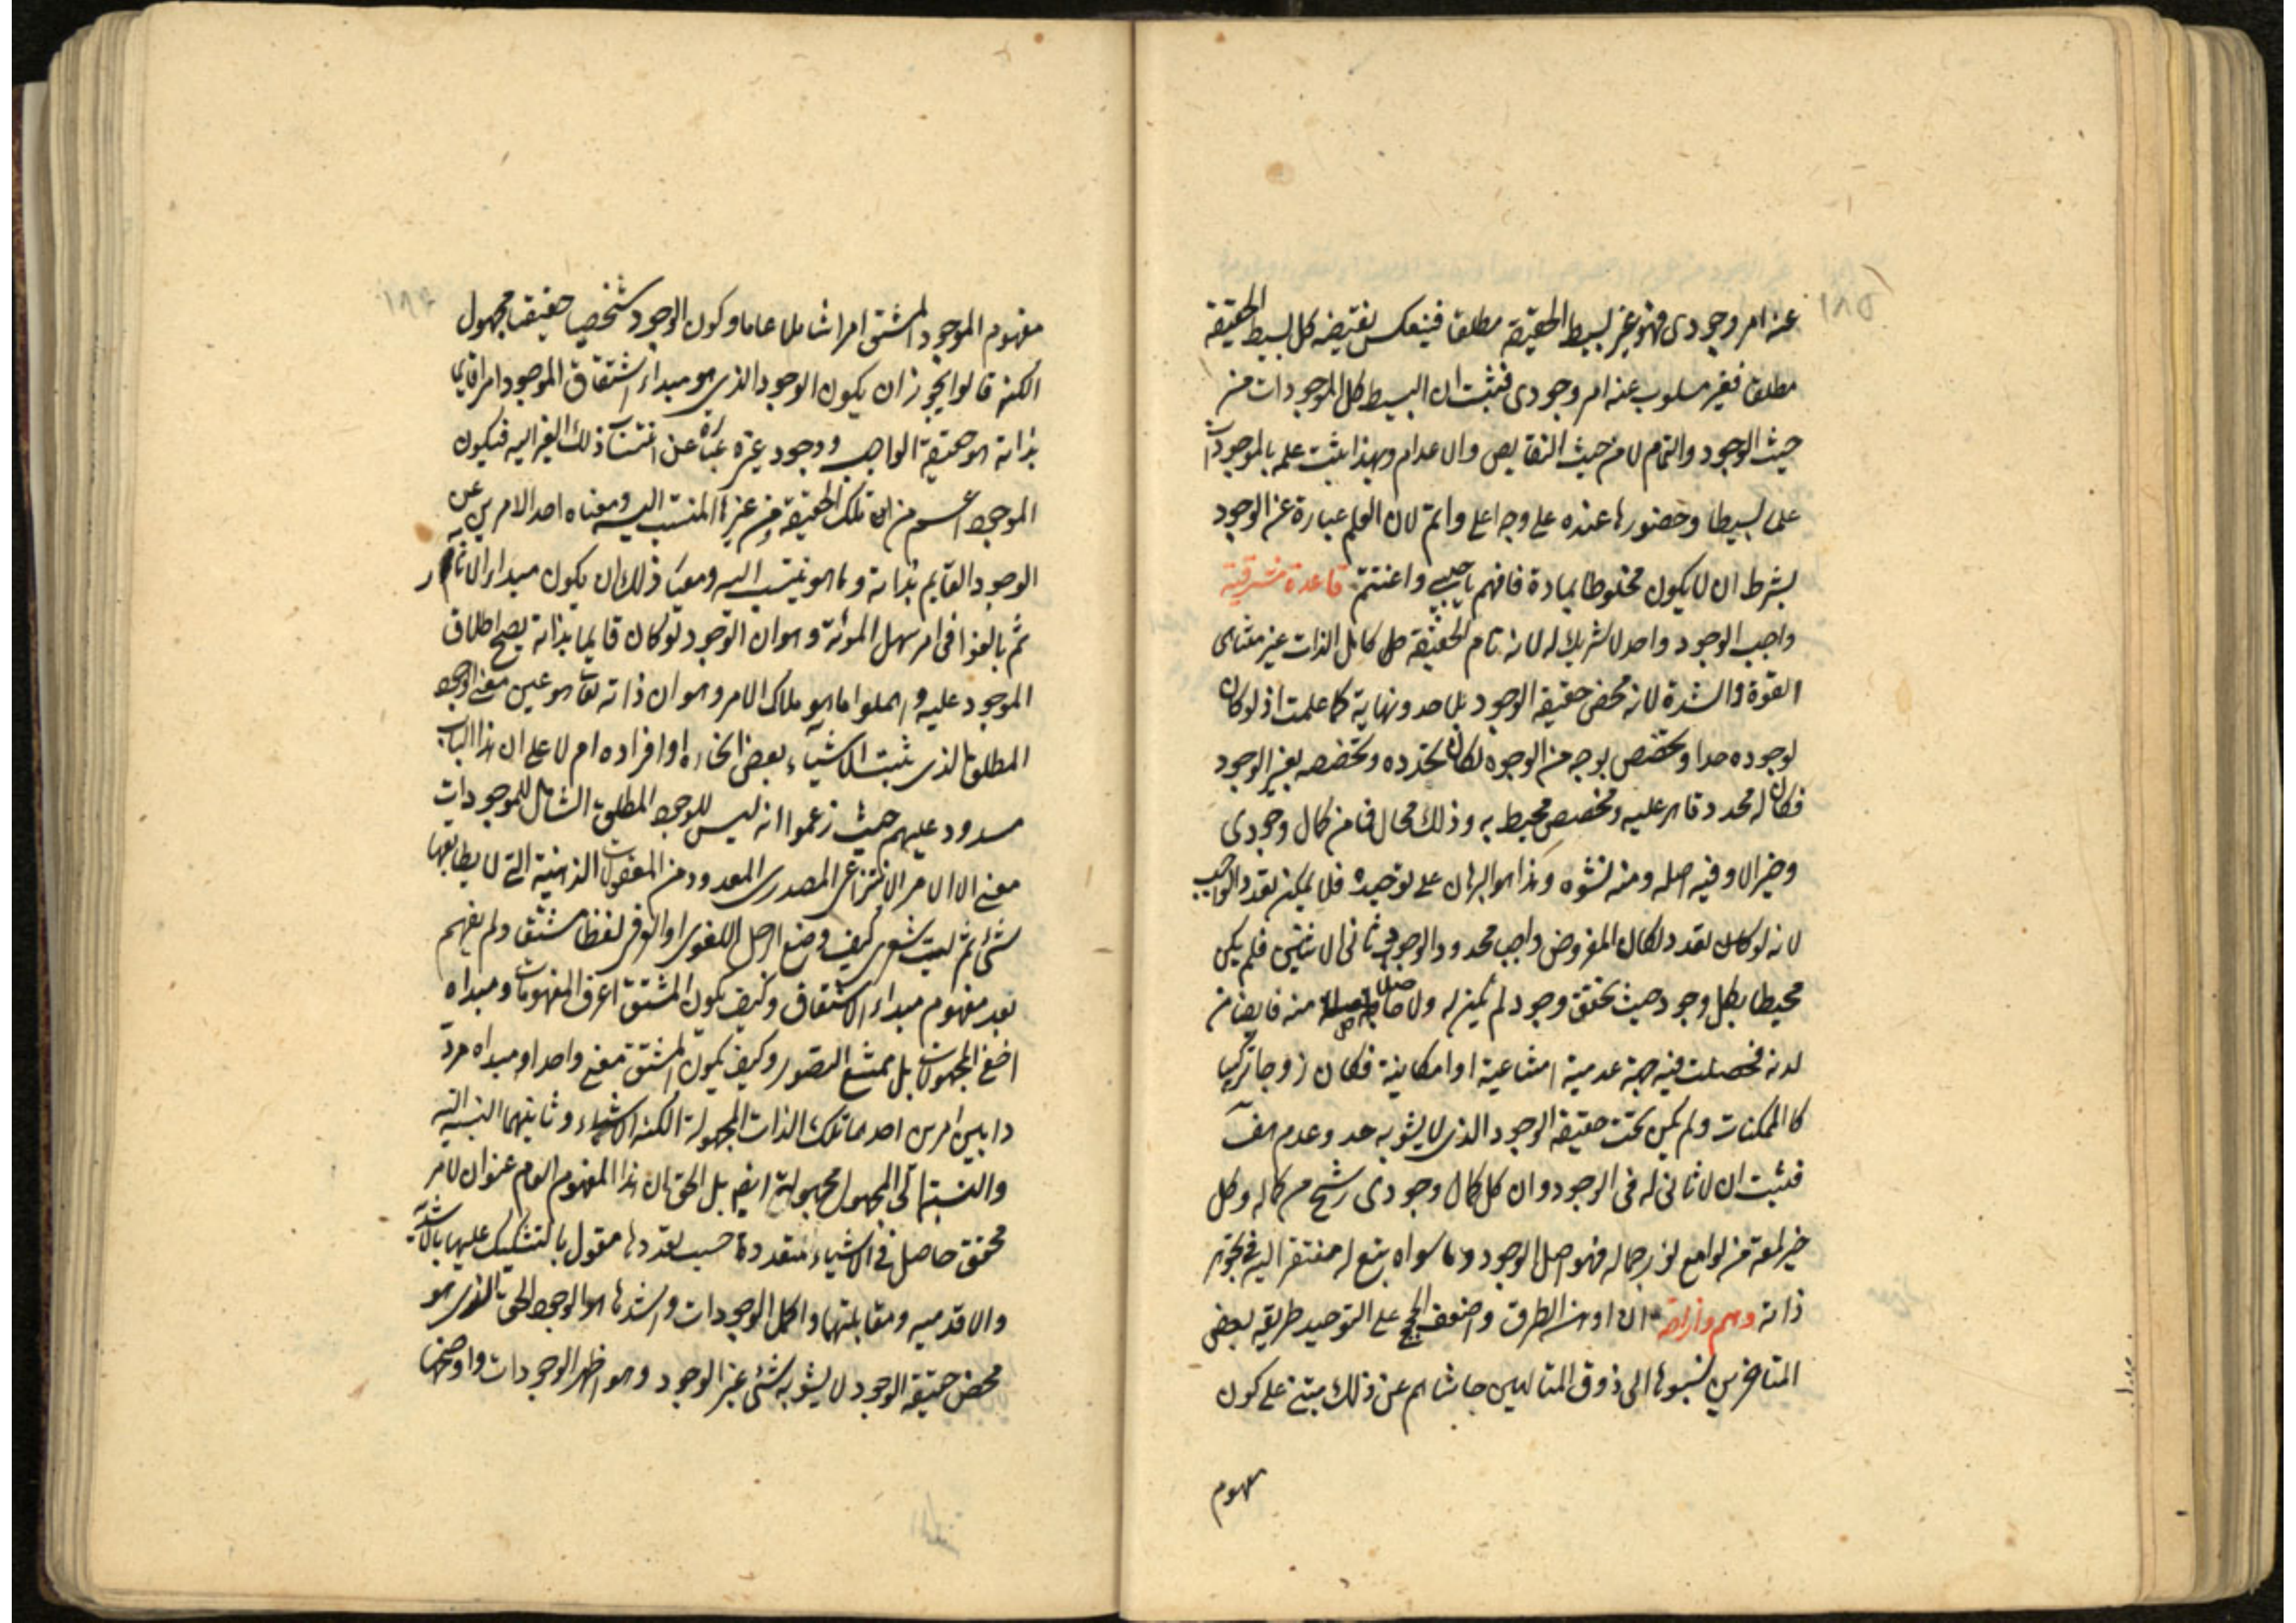 ١٨٥
عنه امر وجودى فهو غير بسيط الحقيقة مطلقا فينعكس نقيضه كل بسيط الحقيقة
مطلقا فغير مسلوب عنه امر وجودى فثبت ان البسيط كل الموجودات من
حيث الوجود والتمام لا من حيث النقايص والاعدام وبهذا يثبت علمه بالموجودات
علما بسيطا وحضورها عنده على وجه اعلى واتم لان العلم عبارة عن الوجود
بشرط ان لا يكون مخلوطا بمادة فافهم يا حبيبى واغتنم قاعدة مشرقية
واجب الوجود واحد لا شريك له لانه تام الحقيقة كامل الذات غير متناهى
القوة والشدة لانه محض حقيقة الوجود بلا حد ونهاية كما علمت اذ لو كان
لوجوده حد او تخصص بوجه من الوجوه لكان تحدده وتخصصه بغير الوجود
فكان له محدد قاهر عليه ومخصص محيط به وذلك محال فما من كمال وجودى
وخير الا وفيه اصله ومنه نشوه وهذا هو البرهان على توحيده فلا يمكن تعدد الواجب
لانه لو كان تعدد لكان المفروض واجب محدود الوجود ثانى الاثنين فلم يكن
محيطا بكل وجود حيث تحقق وجود لم يكن له ولا حاصل منه فايضا من
لدنه فحصلت فيه جهة عدمية امتناعية او امكانية فكان زوجا تركيبيا
كالممكنات ولم يكن تحت حقيقة الوجود الذى لا يشوبه حد وعدم هف
فثبت ان لا ثانى له فى الوجود وان كل كمال وجودى رشح من كماله وكل
خير لمعة من لوامع نور جماله فهو اصل الوجود وما سواه تبع له مفتقر اليه فى تجوهر
ذاته وهم وازاحة ان اوهن الطرق واضعف الحجج على التوحيد طريقة بعض
المتاخرين نسبوها الى ذوق المتالهين حاشاهم عن ذلك مبتنى على كون
مفهوم
مفهوم الموجود المشتق امرا شاملا عاما وكون الوجود شخصيا حقيقيا مجهول
الكنه قالوا يجوز ان يكون الوجود الذى هو مبداء اشتقاق الموجود امرا قايما
بذاته هو حقيقة الواجب ووجود غيره عبارة عن انتساب ذلك الغير اليه فيكون
الموجود اعم من تلك الحقيقة ومن غيرها المنتسب اليه ومعناه احد الامرين من
الوجود القايم بذاته وما هو منتسب اليه ومعيار ذلك ان يكون مبداء الاثار
ثم بالغوا فى امر سهل المؤنة وهو ان الوجود لو كان قايما بذاته يصح اطلاق
الموجود عليه واهملوا ما هو ملاك الامر وهو ان ذاته تعالى هو عين معنى الوجود
المطلق الذى يثبت للاشياء بعض انحاءه او افراده ام لا على ان هذا الباب
مسدود عليهم حيث زعموا انه ليس للوجود المطلق الشامل للموجودات
معنى الا الامر الانتزاعى المصدرى المعدود من المعقولات الذهنية التى لا يطابقها
شئ ثم ليت شعرى كيف وضع الرجل اللغوى او العرفى لفظا مشتقا ولم يفهم
بعد مفهوم مبداء الاشتقاق وكيف يكون المشتق اعرف المفهومات ومبداه
اخفى المجهولات بل ممتنع التصور وكيف يكون المشتق معنى واحد او مبداه مرد
دا بين امرين احدهما تلك الذات المجهولة الكنه للاشياء وثانيهما النسبة اليه
والنسبة الى المجهول مجهولة ايضا بل الحق ان هذا المفهوم العام عنوان لامر
محقق حاصل فى الاشياء متعددة حسب تعددها مقول بالتشكيك عليها بالاشدية
والاقدمية ومقابلتهما واكمل الوجودات واشدها هو الوجود الحق تعالى الذى هو
محض حقيقة الوجود لا يشوبه شئ غير الوجود وهو اظهر الوجودات واوضحها